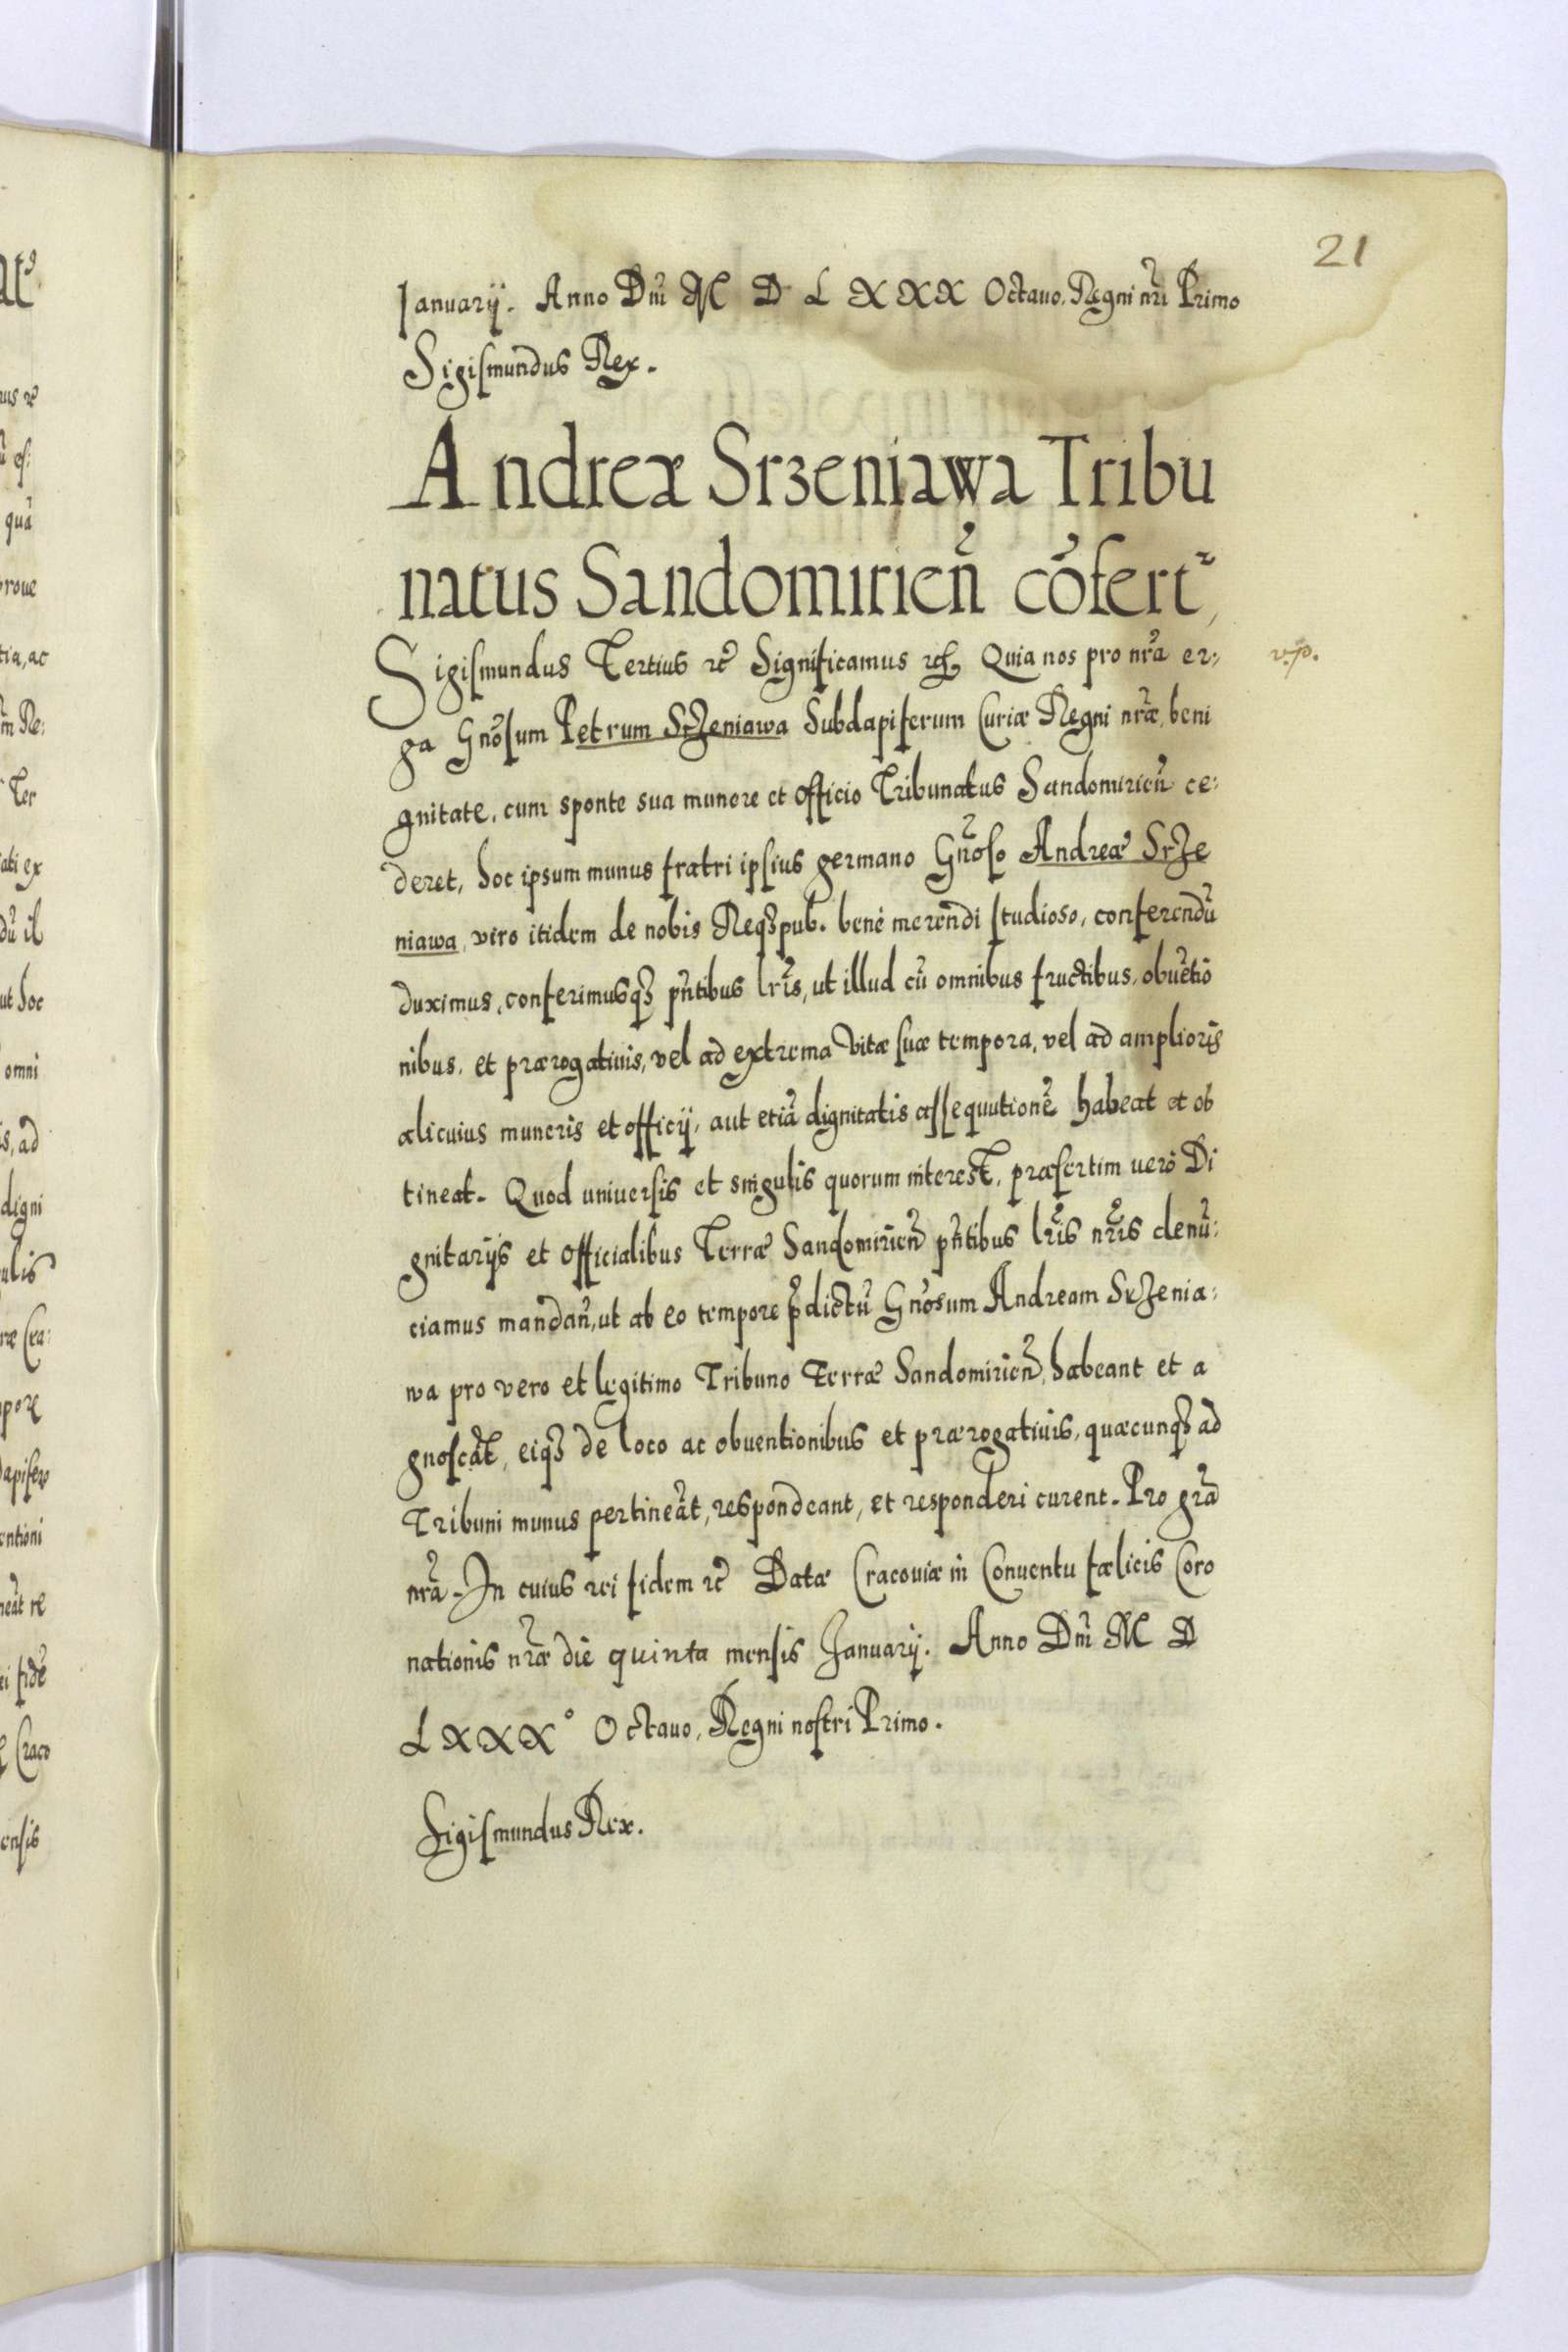 21
Januarij. Anno Dñi M D L XXX Octauo. Regni nr̃i Primo
Sigismundus Rex.
Andreæ Srzeniawa Tribu
natus Sandomirieñ cõfert˜,
Sigismundus Tertius rc̃ Significamus rc̃ Quia nos pro nr̃a er:
ga Gnõsum Petrum SrZeniawa Subdapiferum Curiæ Regni nr̃æ, beni
gnitate, cum sponte sua munere et officio Tribunatus Sandomirieñ ce:
deret, hoc ipsum munus fratri ipsius germano Gñoso Andreæ SrZe
niawa, viro itidem de nobis Reqȝpub. bene merendi studioso, conferendũ
duximus, conferimusqȝ pñtibus lr̃is, ut illud cũ omnibus fructibus, obuẽtio
nibus, et prærogatiuis, vel ad extrema vitæ suæ tempora, vel ad amplioris
alicuius muneris et officij, aut etiã dignitatis assequutionẽ habeat et ob
tineat. Quod uniuersis et singulis quorum interest, præsertim uerò Di
gnitarijs et Officialibus Terræ Sandomirieñ pñtibus lr̃is nr̃is denũ:
ciamus mandañ, ut ab eo tempore p̃dictũ Gnõsum Andream SrZenia:
wa pro vero et legitimo Tribuno Terræ Sandomirieñ, habeant et a
gnoscãt, eiqȝ de loco ac obuentionibus et prærogatiuis, quæcunqȝ ad
Tribuni munus pertineãt, respondeant, et responderi curent. Pro gr̃a
nr̃a. In cuius rei fidem rc̃ Datæ Cracouiæ in Conuentu fælicis Coro
nationis nr̃æ die quinta mensis Januarij. Anno Dñi M D
LXXX° Octauo, Regni nostri Primo.
Sigismundus Rex.